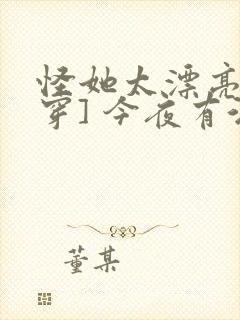 怪她太漂亮
穿] 今夜有
董某